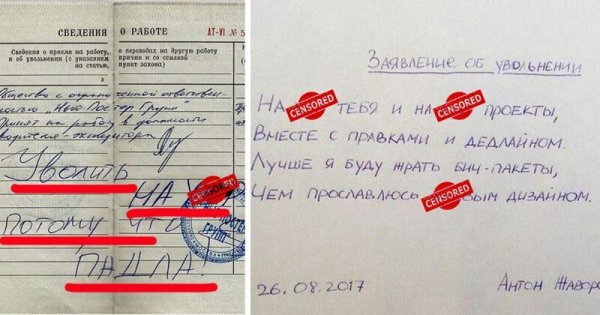 СВЕДЕНИЯ
О РАБОТЕ
АТ-VI № 5
Сведения о приеме на работу,
и об увольнении (с указанием
на статью,
о переводах на другую работу
причин и со ссылкой
пункт закона)
Общество с ограниченной ответствен-
ностью
Принят на работу в должности
УВОЛИТЬ
НА CENSORED
ПОТОМУ ЧТО
ПАДЛА!
ЗАЯВЛЕНИЕ ОБ УВОЛЬНЕНИИ
НА CENSORED ТЕБЯ И НА CENSORED ПРОЕКТЫ,
ВМЕСТЕ С ПРАВКАМИ И ДЕДЛАЙНОМ.
ЛУЧШЕ Я БУДУ ЖРАТЬ БИЧ-ПАКЕТЫ,
ЧЕМ ПРОСЛАВЛЮСЬ CENSORED ВЫМ ДИЗАЙНОМ.
26.08.2017
АНТОН